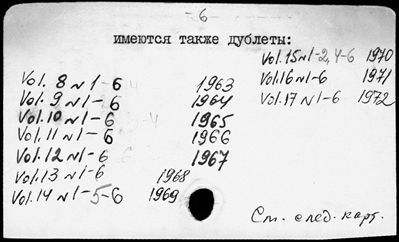 -6-
имеются также дублеты:
Vol. 8 №1-6 1963
Vol. 9 №1-6 1964
Vol. 10 №1-6 1965
Vol. 11 №1-6 1966
Vol. 12 №1-6 1967
Vol. 13 №1-6 1968
Vol. 14 №1-5-6 1969
Vol. 15 №1-2,4-6 1970
Vol. 16 №1-6 1971
Vol. 17 №1-6 1972
См. след. карт.